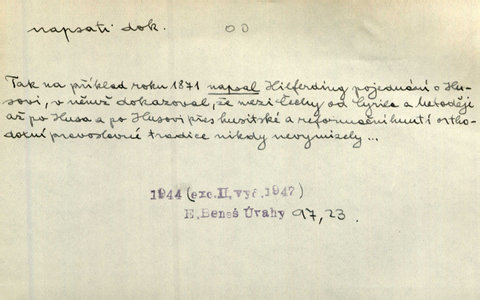 napsati dok. OO
Tak na příklad roku 1871 napsal Hilferding pojednání o Hu-
sovi, v němž dokazoval, že mezi Čechy od Cyrila a Metoděje
až po Husa a po Husovi přes husitské a reformační hnutí ortho-
doxní pravoslavné tradice nikdy nevymizely ...
1944 (exc. II. vyd. 1947)
E. Beneš Úvahy 97, 23.